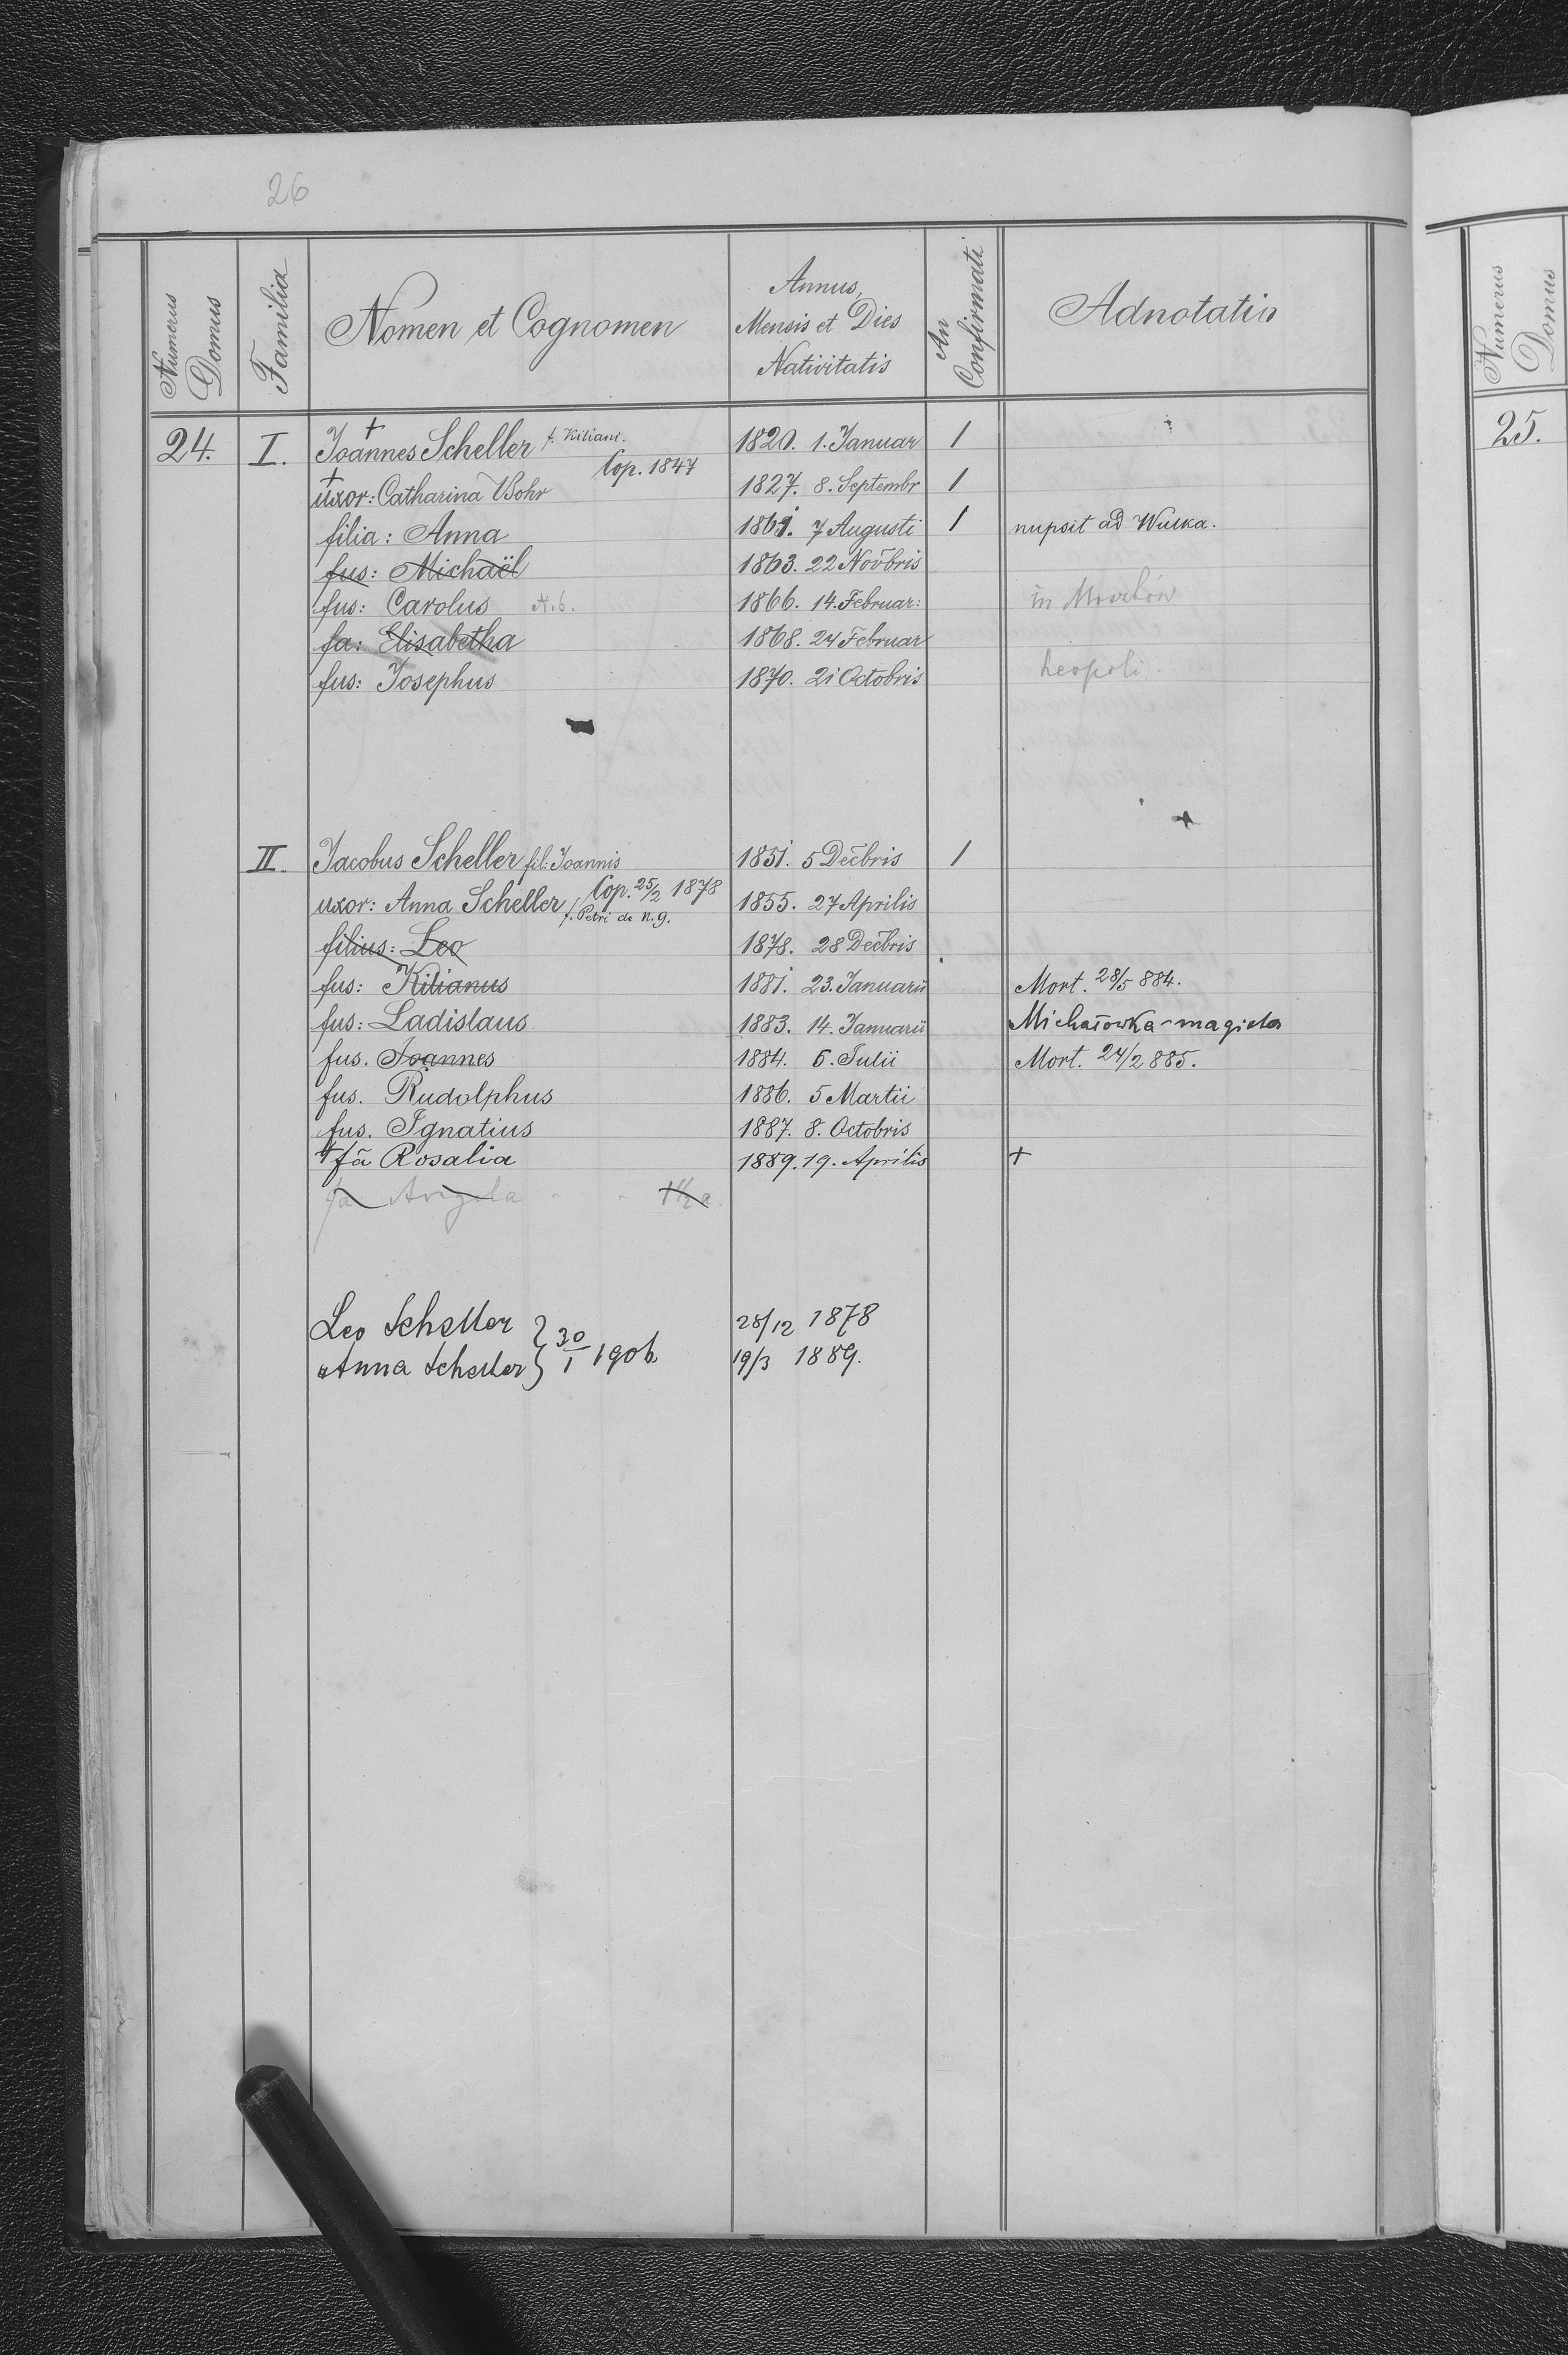 26
Numerus Domus Familia Nomen et Cognomen Annus, Mensis et Dies Nativitatis An Confirmati Adnotatio Numerus Domus
24. I. + Joannes Scheller f. Kiliani. 1820. 1. Januar 1 25.
Cop. 1847
+ uxor: Catharina Bohr 1827. 8. Septembr 1
filia: Anna 1861. 7 Augusti 1 nupsit ad Wulka.
fus: Michaël 1863. 22 Novbris
fus: Carolus N. 6. 1866. 14. Februar: in
fa: Elisabetha 1868. 24 Februar
fus: Josephus 1870. 21 Octobris Leopoli
II. Jacobus Scheller fil: Joannis 1851. 5 Decbris 1
Cop. 25/2 1878
uxor: Anna Scheller f. Petri de N. 9. 1855. 27 Aprilis
filius: Leo 1878. 28 Decbris
fus: Kilianus 1881. 23. Januarii Mort. 28/5 884.
fus: Ladislaus 1883. 14. Januarii Michałowka-magieła
fus. Joannes 1884. 6. Julii Mort. 24/2 885.
fus. Rudolphus 1886. 5 Martii
fus. Ignatius 1887. 8. Octobris
+ fa Rosalia 1889. 19. Aprilis +
fa
Leo Scheller 28/12 1878
} 30/I 1906
Anna Scheller 19/3 1889.